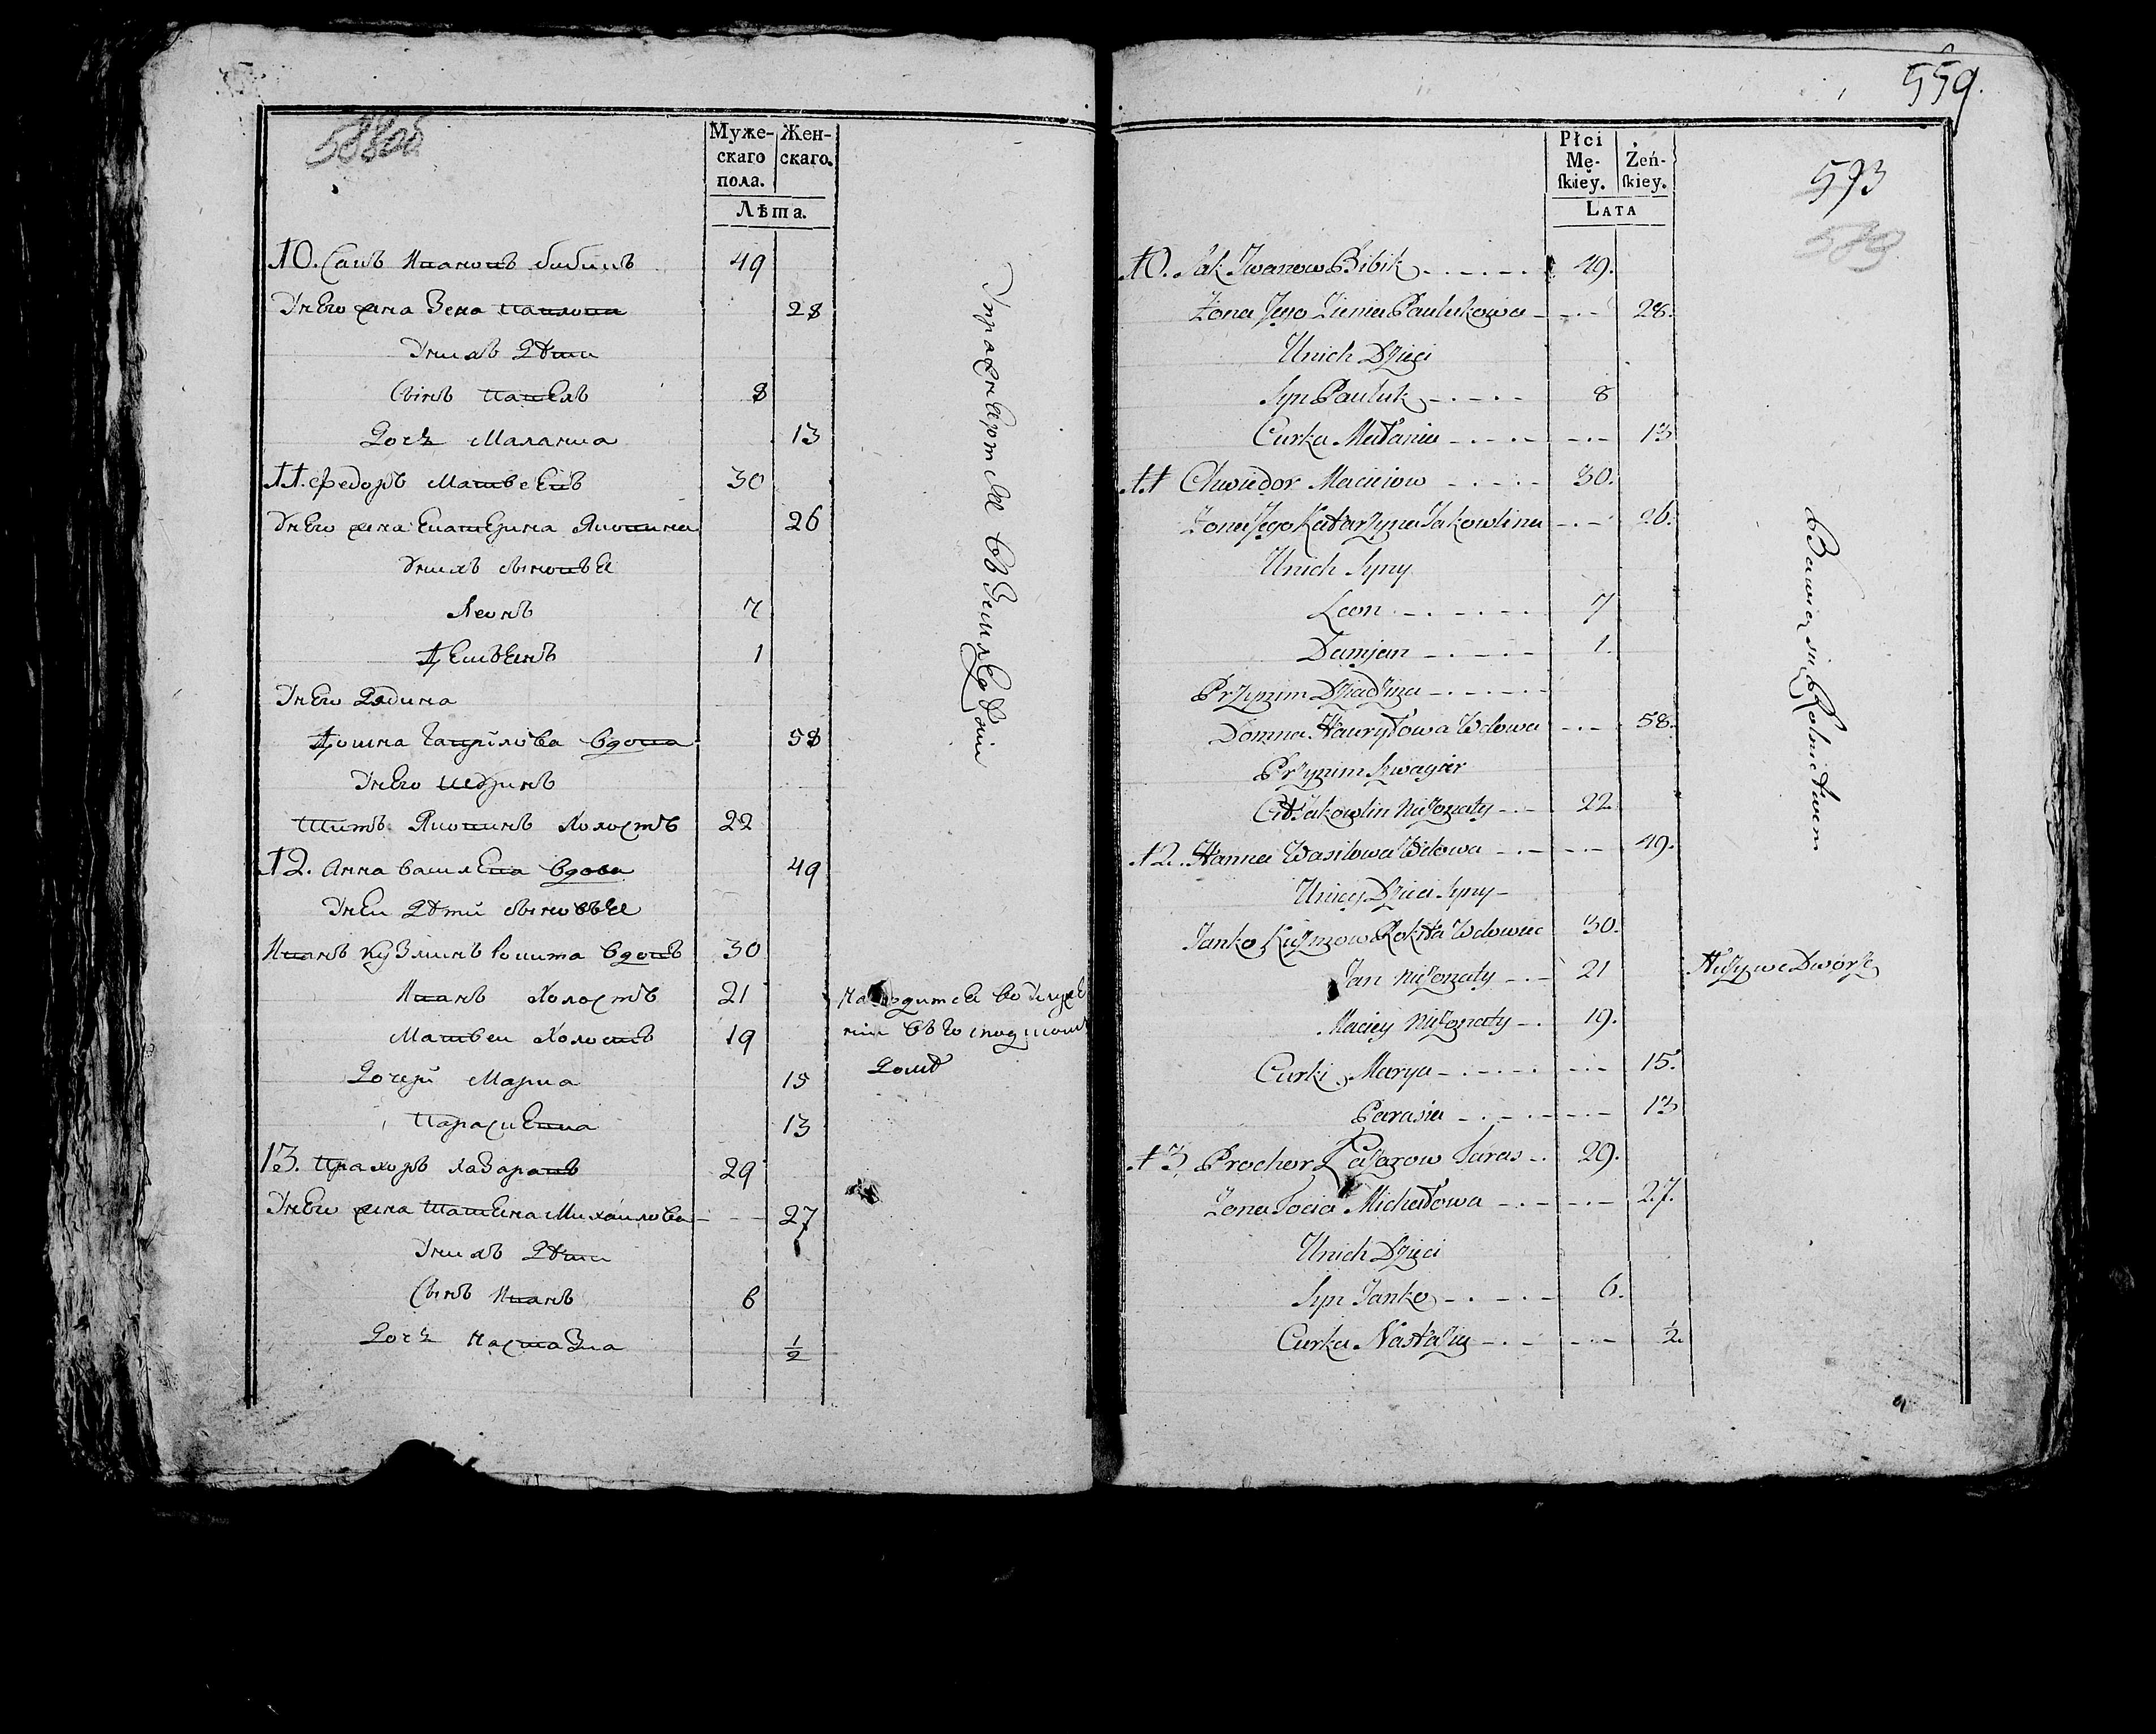 588об
Муже-
скаго
пола.
Жен-
скаго.
Лѣта.
10. Сакъ Ивановъ бибикъ 49
Унего жена Зена павлова 28
Унихъ Дѣти
Сынъ павелъ 8
Дочь Маланиа 13
11. Федоръ Матвеевъ 30
Унего жена Екатерина Яковлина 26
Унихъ сыновья
Леонъ 7
Демьянъ 1
Унего Дядина
Домна Гаврилова вдова 58
Унего шуринъ
Титъ Яковинъ Холостъ 22
12. Анна василева вдова 49
Унеи Дѣти сыновья
Иванъ Кузминъ Рокита вдовъ 30
Иванъ Холостъ 21
Матвеи Холостъ 19
Дочери Мариа 15
Парасковиа 13
13. Прахоръ лазаровъ 29
Унего жена Татьяна Михаилова 27
Унихъ Дѣти
Сынъ Иванъ 6
Дочь Настазиа 1/2
Упражняются въ Земледѣлии
Находится во служе
нии въ господском
Домѣ
559.
593
589
Płci
Mę-
ſkiey.
Żeń-
ſkiey.
LATA
10. Sak Iwanow Bibik 49.
Żona Jego Zienia Paulukowa 28.
Unich Dzieci
Syn Pauluk 8
Curka Małania 13
11 Chwiedor Maciejow 30.
Zona Jego Katarzyna Jakowlina 26.
Unich Syny
Leon 7
Damjan 1.
Przynim Dziadzina
Domna Hawryłowa Wdowa 58.
Przynim Szwagier
Cit Jakowlin Nieżonaty 22
12. Hanna Wasilowa Wdowa 49.
Uniey Dzieci Syny
Janko Kuzmow Rokita Wdowiec 30.
Jan Nieżonaty 21
Maciey Nieżonaty 19.
Curki Marya 15.
Parasia 13
13 Prochor Łazarow Taras 29.
Zona Tocia Michałowa 27.
Unich Dzieci
Syn Janko 6.
Curka Nastazia 1/2
Bawią się Rolnictwem
Służy we Dworze